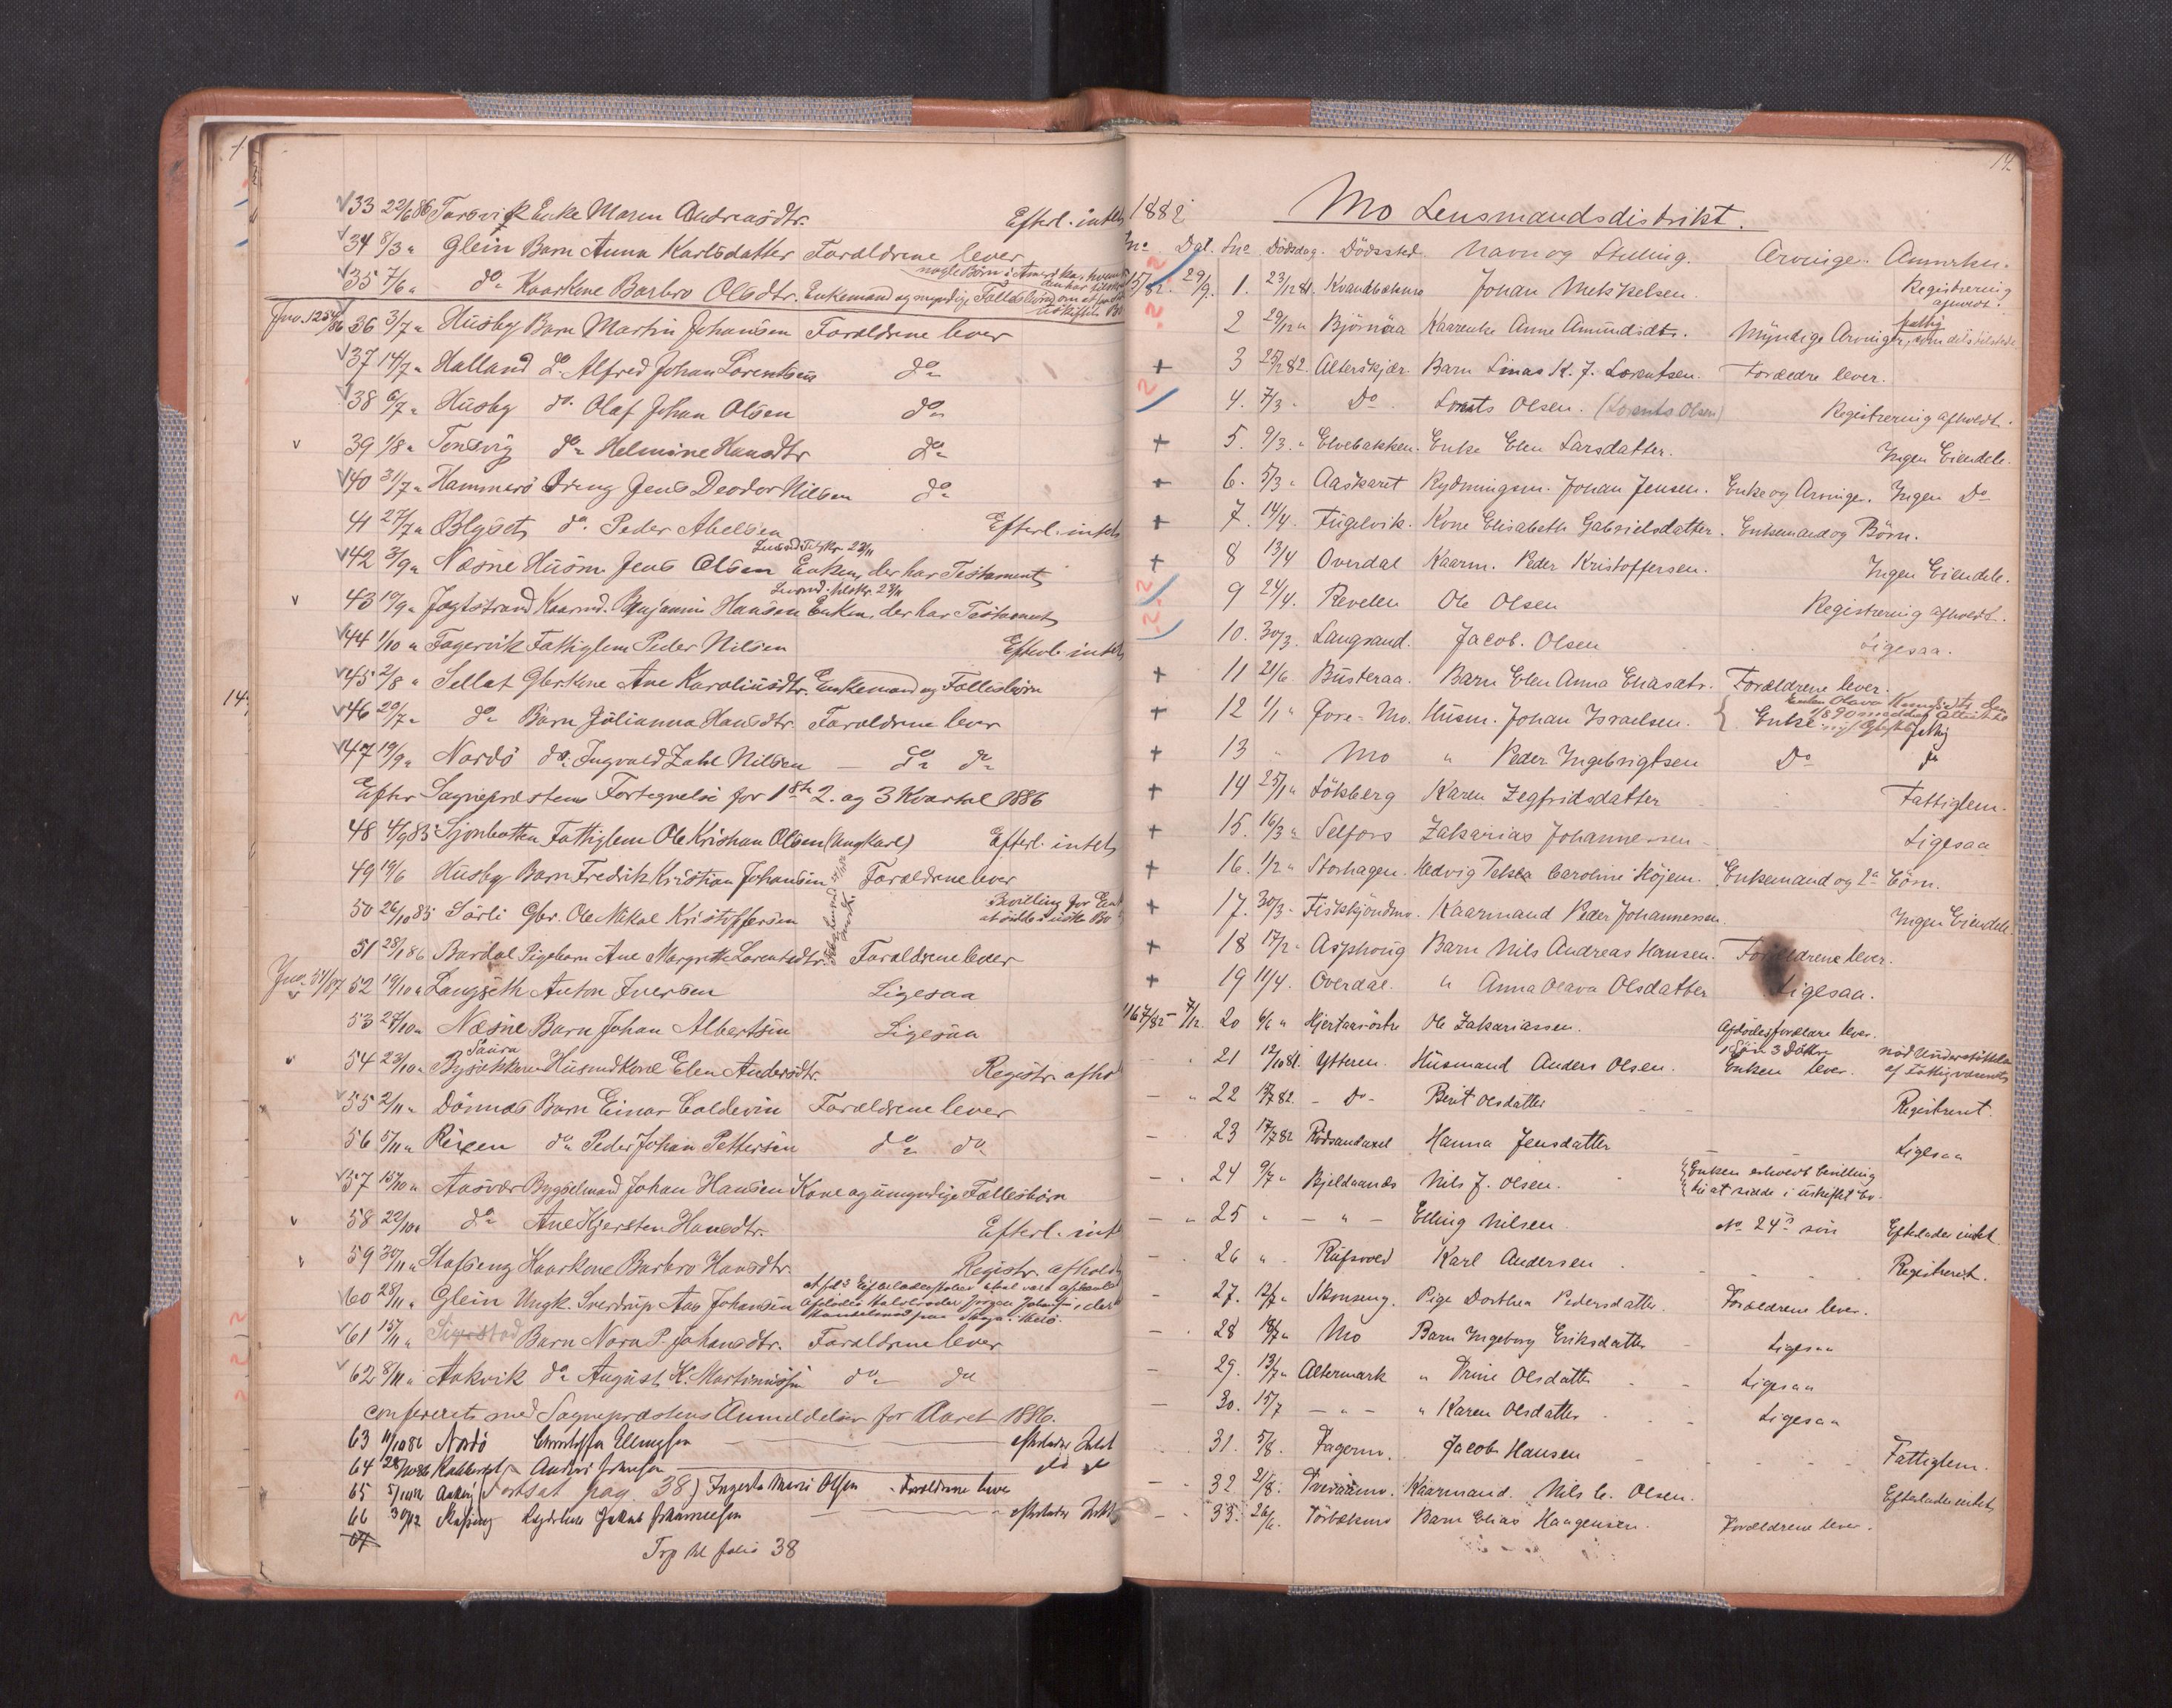 33 22/6 86 Enke Maren Andreasdtr. Efterl. intet
34 8/3 " Glein Barn Anna Karlsdatter Forældrene lever
35 7/6 " do Kaarkone Barbro Olsdtr. Enkemand og umyndige Fællesbørn
36 3/7 " Husby Barn Martin Johansen Forældrene lever
37 14/7 " Halland do Alfred Johan Lorentsen do
38 6/7 " Husby do. Olaf Johan Olsen do
39 1/8 " Tonsvig do Helmine Hansdtr do
40 31/7 " Hammerö Dreng Jens Deodor Nilsen do
41 27/7 " do. Peder Abelsen Efterl. intet
42 3/9 " Næsne Husm. Jens Olsen Enken, der har Testament
43 19/9 " Jegtstrand Kaarmd. Benjamin Hansen Enken, der har Testament
44 1/10 " Fagervik Fattiglem Peder Nilsen Efterl. intet
45 2/8 " Sellat Gbrkone Ane Karoliusdtr. Enkemand og Fællesbørn
46 20/7 " do Barn Julianna Hansdtr. Forældrene lever
47 19/9 " Nordö do. Ingvald Zahl Nilsen — do do
Efter Sognepræstens Fortegnelse for 1ste 2. og 3 Kvartal 1886
48 4/9 85 Sjonbotten Fattiglem Ole Kristian Olsen (Ungkarl) Efterl. intet
49 19/6 Husby Barn Fredrik Kristian Johansen Forældrene lever
50 26/10 85 Sörli Gbr. Ole Nikal Kristoffersen Bevilling for Enk at sidde i uskiftet Bo
51 28/1 86 Bardal Pigebarn Ane Margrethe Lorentsdtr. Forældrene lever
52 19/10 " Langseth Anton Iversen Ligesaa
53 27/10 " Næsne Barn Johan Albertsen Ligesaa
54 23/10 " Husmdkone Elen Andersdtr. Registr. afho
55 2/11 " Dönnæs Barn Einar Coldevin Forældrene lever
56 5/11 " do Peder Johan Pettersen do do
57 15/10 " Aasvær Bygselmand Johan Hansen Kone og umyndige Fællesbørn
58 22/10 " do Ane Kjersten Hansdtr. Efterl. int
59 30/11 " Stafseng Kaarkone Barbro Hansdtr. Registr. afhold
60 28/11 " Glein Ungk. Sverdrup Aas Johansen
61 15/11 " Barn Nora P. Johansdtr. Forældrene lever
62 8/11 " Aakvik do August K. Martinussen do do
confereret med Sognepræstens Anmeldelser for Aaret 1886.
63 11/10 86 Nordö Christoffer Ellingsen efterlader Intet
64 Anders Johnsen do do
65 (Fortsat pag. 38) Ingerta Marie Olsen Forældrene lever
66 30/12 Jakob Johannessen efterlader Intet
67
Trp til folio 38
14
1882
Mo Lensmandsdistrikt.
Jno. Dat. Lno Dödsdag. Dödssted. Navn og Stilling. Arvinge. Anmrkn.
29/9. 1. 23/12 81. Johan Meskelsen. Registrering afholdt.
2 29/12 " Bjørnaa Kaarenke Anne Amundsdtr. Myndige Arvinger, fattig
+ 3 82. Alterskjær. Barn Linas K. J. Lorentsen. Forældre lever.
4. 7/3 " Do. Lorents Olsen. (Lorents Olsen) Registrering afholdt.
+ 5. 9/3. " Elvebakken. Enke Elen Larsdatter. Ingen Eiendele.
+ 6. 5/3 " Aaskaret Rydningsm. Johan Jensen. Enke og Arvinger. Ingen Do
+ 7. 14/4. Fugelvik. Kone Elisabeth Gabrielsdatter. Enkemand og Börn.
+ 8 13/4 Overdal Kaarm. Peder Kristoffersen. Ingen Eiendele.
9 24/4. Revelen Ole Olsen Registrering afholdt.
10. 30/3. Langsand. Jacob. Olsen Ligesaa.
+ 11 21/6 Busteraa. Barn Elen Anna Eliasdtr. Forældrene lever.
+ 12 1/1 " Gore-Mo. Husm. Johan Israelsen. Enke fattig
+ 13 " Mo " Peder Ingebrigtsen Do
+ 14 25/1 " Karen Zegfridsdatter Fattiglem.
+ 15. 16/3 " Selfors Zakarias Johannessen Ligesaa
+ 16. 1/2 " Storhagen. Hedvig Caroline Höjem. Enkemand og 2 Börn.
+ 17. 30/3 " Kaarmand Peder Johannessen. Ingen Eiendele
+ 18 17/2 " Asphoug Barn Nils Andreas Hansen. Forældrene lever.
+ 19 11/4. Overdal. " Anna Olava Olsdatter Ligesaa.
7/12. 20 6/6 " Hjertaasöstre Ole Zakariassen. Afdödes forældre lever.
21 12/10 81. Ytteren. Husmand Anders Olsen. 1 Sön 3 Dötre Enken lever. nöd Understöttelse af Fattigvæsenet
22 82. - Do - Berit Olsdatter Registreret.
23 17/7 82 Rödsandaxel Hanna Jensdatter Ligesaa
24 9/7 " Bjeldaanæs Nils J. Olsen. Enken erholdt bevilling til at sidde i uskiftet bo.
25 " — " — Elling Nilsen No 24s sön Efterlader intet
26 " Rufsvold Karl Andersen Registreret.
27. 12/7 " Skonseng. Pige Dorthea Pedersdatter. Forældrene lever.
28 18/7 " Mo Barn Ingeborg Eriksdatter Ligesaa
29. 13/7 " Altermark " Trine Olsdatter Ligesaa
30. 15/7 — " — " Karen Olsdatter Ligesaa
31. 5/8. Fagermo. Jacob Hansen Fattiglem.
32 2/8. Tveraamo. Kaarmand. Nils C. Olsen. Efterlader intet
33. 26/6. Barn Elias Haagensen. Forældrene lever.